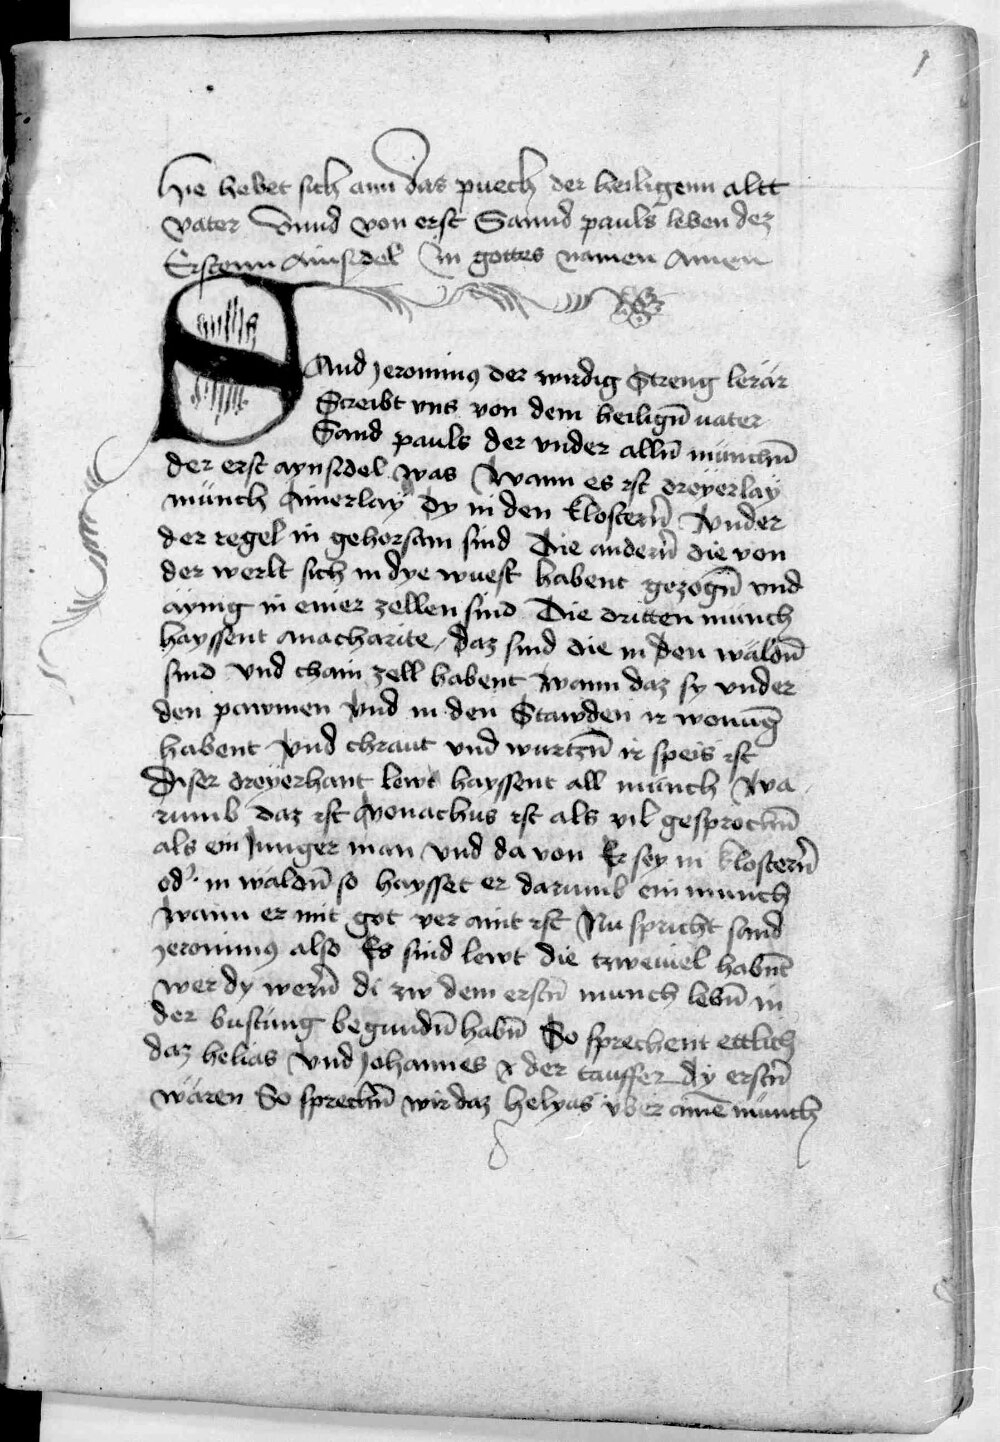 1
Hie hebet sich ann das puech der heiligenn altt
vater Vnnd von erst Sannd pauls leben dez
Erstenn ainsidel In gottes namen Amen
SAnd Jeronimus der wirdig Streng lerär
Screibt vns von dem heilign̄ vater
Sand pauls der vnder alln̄ münchn̄
der erst aynsidel was Wann es ist dreyerlay
münch Ainerlay dy in den klostern̄ Vnder
der regel in gehorsam sind Die andern̄ die von
der werlt sich in dye wuest habent gezogn̄ vnd
aynig in einer zellen sind Die dritten münch
hayssent anacharite / daz sind die in den wäldn̄
sind vnd chain zell habent Wann daz sy vnder
den pawmen Vnd in den Stawden ir wonūg
habent Vnd chraut vnd wurtzn̄ ir speis ist
Diser dreyerhant lewt hayssent all münch Wa
rumb daz ist Monachus ist als vil gesprochn̄
als ein Junger man Vnd da von Er sey in klostern̄
od' in waldn̄ so haysset er darumb ein munch
Wann er mit got ver aint ist Nu spricht sand
Jeronimus also Es sind lewt die tzweivel habnt
wer dy wern̄ di zw dem erstn̄ munch lebn̄ in
der wustung begundn̄ habn̄ So sprechent ettlich
daz helias Vnd Johannes x der tauffer dy erstn̄
wären So sprechn̄ wir daz helyas vber ainē münch